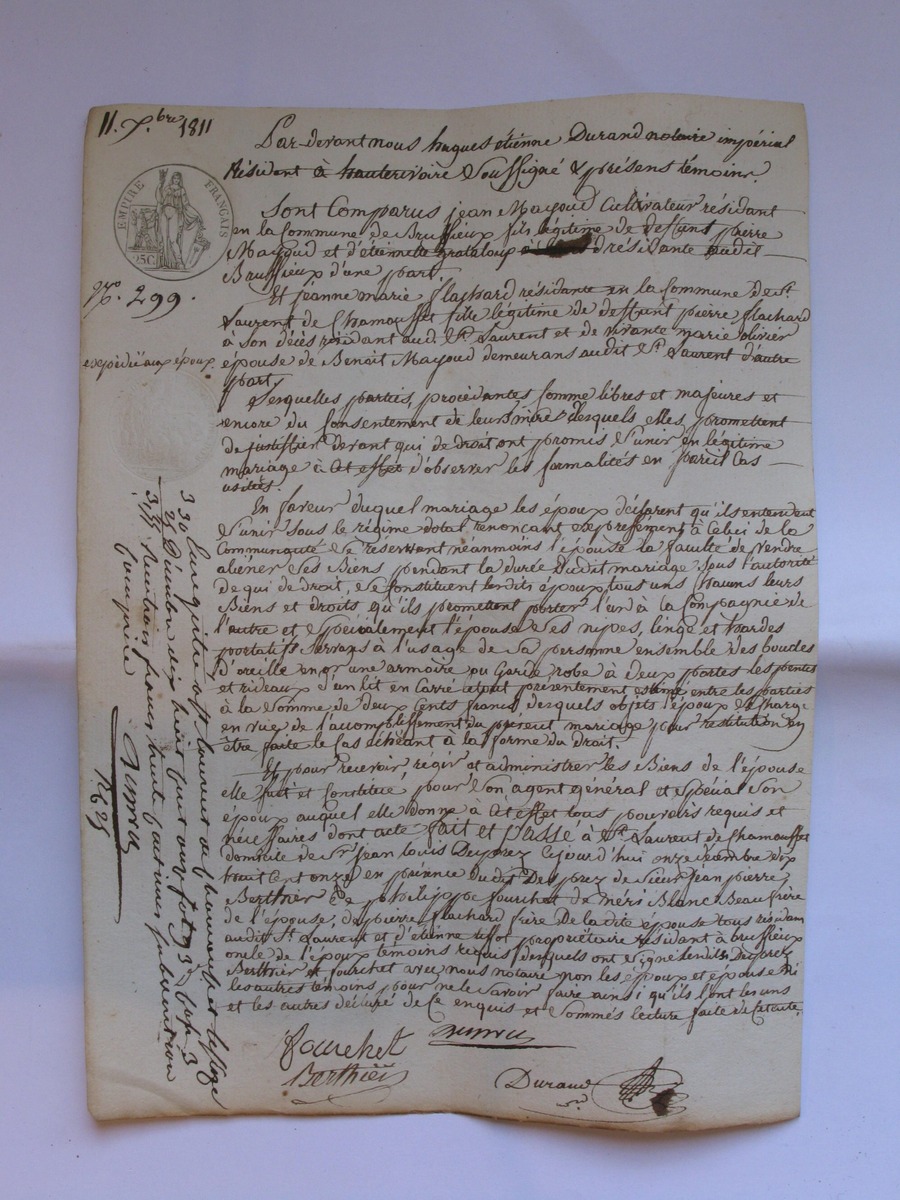 11. X.bre 1811
EMPIRE FRANÇAIS
25C
No. 299.
expédiée aux époux.
Par-devant nous hugues étienne Durand notaire impérial
Résident à hauterivoire Soussigné & présens témoins.
Sont Comparus jean Mayoud Cultivateur résidant
en la Commune de Brussieux fils légitime de deffunt pierre
Mayoud et d'étiennette grataloup résidante audit
Brussieux d'une part.
Et jeanne marie flachard résidante en la Commune de St.
Laurent de Chamousset fille légitime de deffunt pierre flachard
à Son décès résidant aud. St. Laurent et de vivante marie olivier
épouse de Benoît Mayoud demeurans audit St. Laurent d'autre
part,
Lesquelles parties, procédantes Comme libres et majeures et
encore du Consentement de leurs mères desquels elles promettent
de justiffier devant qui de droit ont promis S'unir en légitime
mariage à Cet effet d'observer les formalités en pareil Cas
usités.
En faveur duquel mariage les époux déclarent qu'ils entendent
S'unir Sous le régime dotal renonçant expressement à Celui de la
Communauté Se réservant néanmoins l'épouse la faculté de vendre
aliéner Ses Biens pendant la durée dudit mariage Sous l'autorité
de qui de droit, Se Constituent lesdits époux tous uns Chacuns leurs
Biens et droits qu'ils promettent porter l'un à la Compagnie de
l'autre et Spécialement l'épouse Ses nipes, linge et hardes
portatifs Servans à l'usage de Sa personne ensemble des boucles
d'oreille en or une armoire ou Garde robe à deux portes les pentes
et rideaux d'un lit en Carré le tout présentement estimé entre les parties
à la Somme de deux Cents francs desquels objets l'époux Se Charge
en vue de l'accomplissement du présent mariage pour restitution en
être faite le Cas échéant à la forme du Droit.
Et pour recevoir, régir et administrer les Biens de l'épouse
elle fait et Constitue pour Son agent général et Spécial Son
époux auquel elle donne à Cet effet tous pouvoirs requis et
nécessaires dont acte fait et passé à St. Laurent de Chamousset
domicile de Sr. Jean Louis Duprez Cejourd'hui onze décembre dix
huit Cent onze en présence dudit Duprez de Sieur jean pierre
Berthier & philippe fourchet de méri Blanc Beaufrère
de l'épouse, de pierre flachard frère De la dite épouse tous résidans
audit St. Laurent et d'étienne tissot propriétaire résidant à brussieux
oncle de l'époux témoins requis desquels ont Signé lesdits Duprez
Berthier et fourchet avec nous notaire non les époux et épouse ni
les autres témoins pour ne le Savoir faire ainsi qu'ils l'ont les uns
et les autres déclaré de Ce enquis et Sommés lecture faite de l'acte.
fourchet
Berthier
Durand
Enregistré à St. Laurent de Chamousset le Seize
Décembre dix huit Cent onze fol. 93
francs huit Centimes Subvention
Comprise